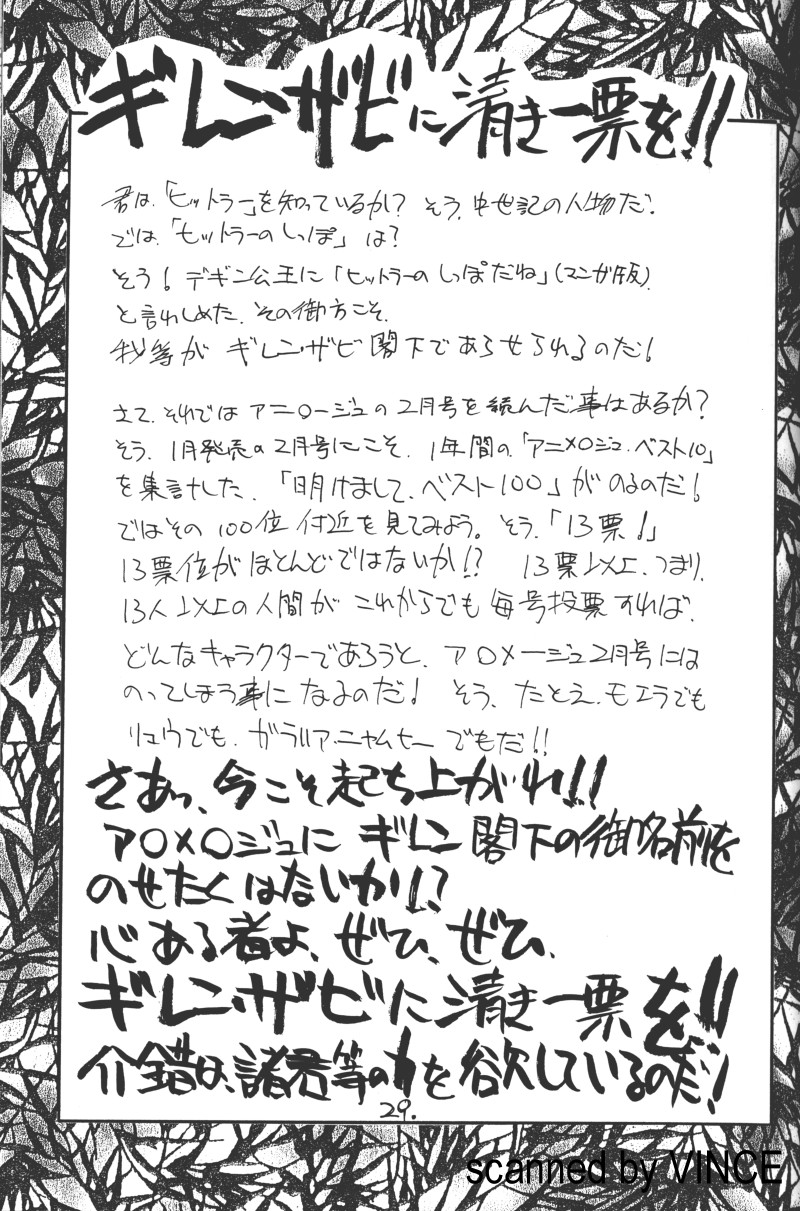 ギレン・ザビに清き一票を!!
君は、「ヒットラー」を知っているか？ そう、中世記の人物だ.
では、「ヒットラーのしっぽ」は？
そう！ デギン公王に「ヒットラーの しっぽだね」(マンガ版).
と言わしめた、その御方こそ.
我等が ギレン・ザビ 閣下であらせられるのだ！
さて、それでは アニ〇ージュの 2月号を読んだ事はあるか？
そう、1月発売の2月号にこそ、1年間の「アニメ〇ジュ・ベスト10」
を集計した、「明けまして、ベスト100」がのるのだ！
ではその 100位付近を見てみよう。そう、「13票！」
13票位がほとんどではないか!? 13票以上、つまり、
13人以上の人間が これからでも毎号投票すれば、
どんなキャラクターであろうと、ア〇メージュ2月号には
のってしまう事になるのだ！ そう、たとえ、モエラでも
リュウでも、ガラハ・ニャムヒーでもだ!!
さあっ、今こそ起ち上がれ!!
ア〇メ〇ジュに ギレン閣下の御名前を
のせたくはないか!?
心ある者よ、ぜひ、ぜひ、
ギレン・ザビに清き一票を!!
介錯は、諸君等の力を欲しているのだ！
29.
scanned by VINCE